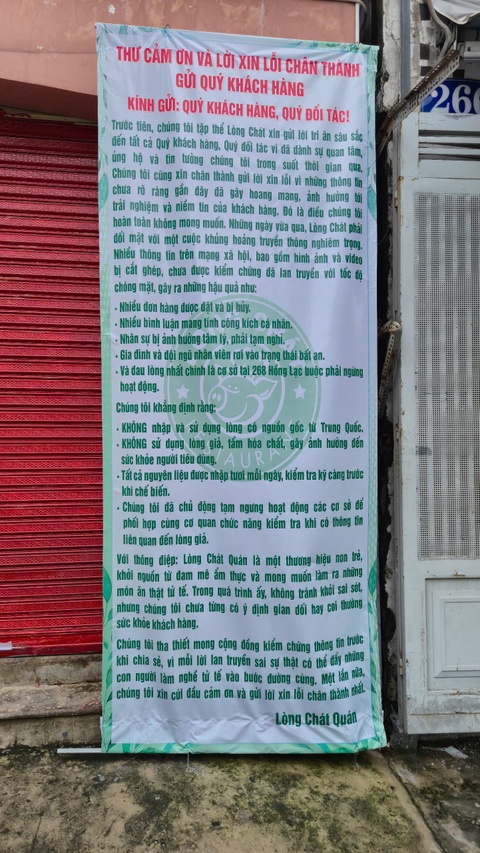 THƯ CẢM ƠN VÀ LỜI XIN LỖI CHÂN THÀNH
GỬI QUÝ KHÁCH HÀNG
KÍNH GỬI: QUÝ KHÁCH HÀNG, QUÝ ĐỐI TÁC!
Trước tiên, chúng tôi tập thể Lòng Chát xin gửi lời tri ân sâu sắc
đến tất cả Quý khách hàng, Quý đối tác vì đã dành sự quan tâm,
ủng hộ và tin tưởng chúng tôi trong suốt thời gian qua.
Chúng tôi cũng xin chân thành gửi lời xin lỗi vì những thông tin
chưa rõ ràng gần đây đã gây hoang mang, ảnh hưởng tới
trải nghiệm và niềm tin của khách hàng. Đó là điều chúng tôi
hoàn toàn không mong muốn. Những ngày vừa qua, Lòng Chát phải
đối mặt với một cuộc khủng hoảng truyền thông nghiêm trọng.
Nhiều thông tin trên mạng xã hội, bao gồm hình ảnh và video
bị cắt ghép, chưa được kiểm chứng đã lan truyền với tốc độ
chóng mặt, gây ra những hậu quả như:
- Nhiều đơn hàng được đặt và bị hủy.
- Nhiều bình luận mang tính công kích cá nhân.
- Nhân sự bị ảnh hưởng tâm lý, phải tạm nghỉ.
- Gia đình và đội ngũ nhân viên rơi vào trạng thái bất an.
- Và đau lòng nhất chính là cơ sở tại 268 Hồng Lạc buộc phải ngừng
hoạt động.
Chúng tôi khẳng định rằng:
- KHÔNG nhập và sử dụng lòng có nguồn gốc từ Trung Quốc.
- KHÔNG sử dụng lòng giả, tẩm hóa chất, gây ảnh hưởng đến
sức khỏe người tiêu dùng.
- Tất cả nguyên liệu được nhập tươi mỗi ngày, kiểm tra kỹ càng trước
khi chế biến.
- Chúng tôi đã chủ động tạm ngưng hoạt động các cơ sở để
phối hợp cùng cơ quan chức năng kiểm tra khi có thông tin
liên quan đến lòng giả.
Với thông điệp: Lòng Chát Quán là một thương hiệu non trẻ,
khởi nguồn từ đam mê ẩm thực và mong muốn làm ra những
món ăn thật tử tế. Trong quá trình ấy, không tránh khỏi sai sót,
nhưng chúng tôi chưa từng có ý định gian dối hay coi thường
sức khỏe khách hàng.
Chúng tôi tha thiết mong cộng đồng kiểm chứng thông tin trước
khi chia sẻ, vì mỗi lời lan truyền sai sự thật có thể đẩy những
con người làm nghề tử tế vào bước đường cùng. Một lần nữa,
chúng tôi xin cúi đầu cảm ơn và gửi lời xin lỗi chân thành nhất.
Lòng Chát Quán
260